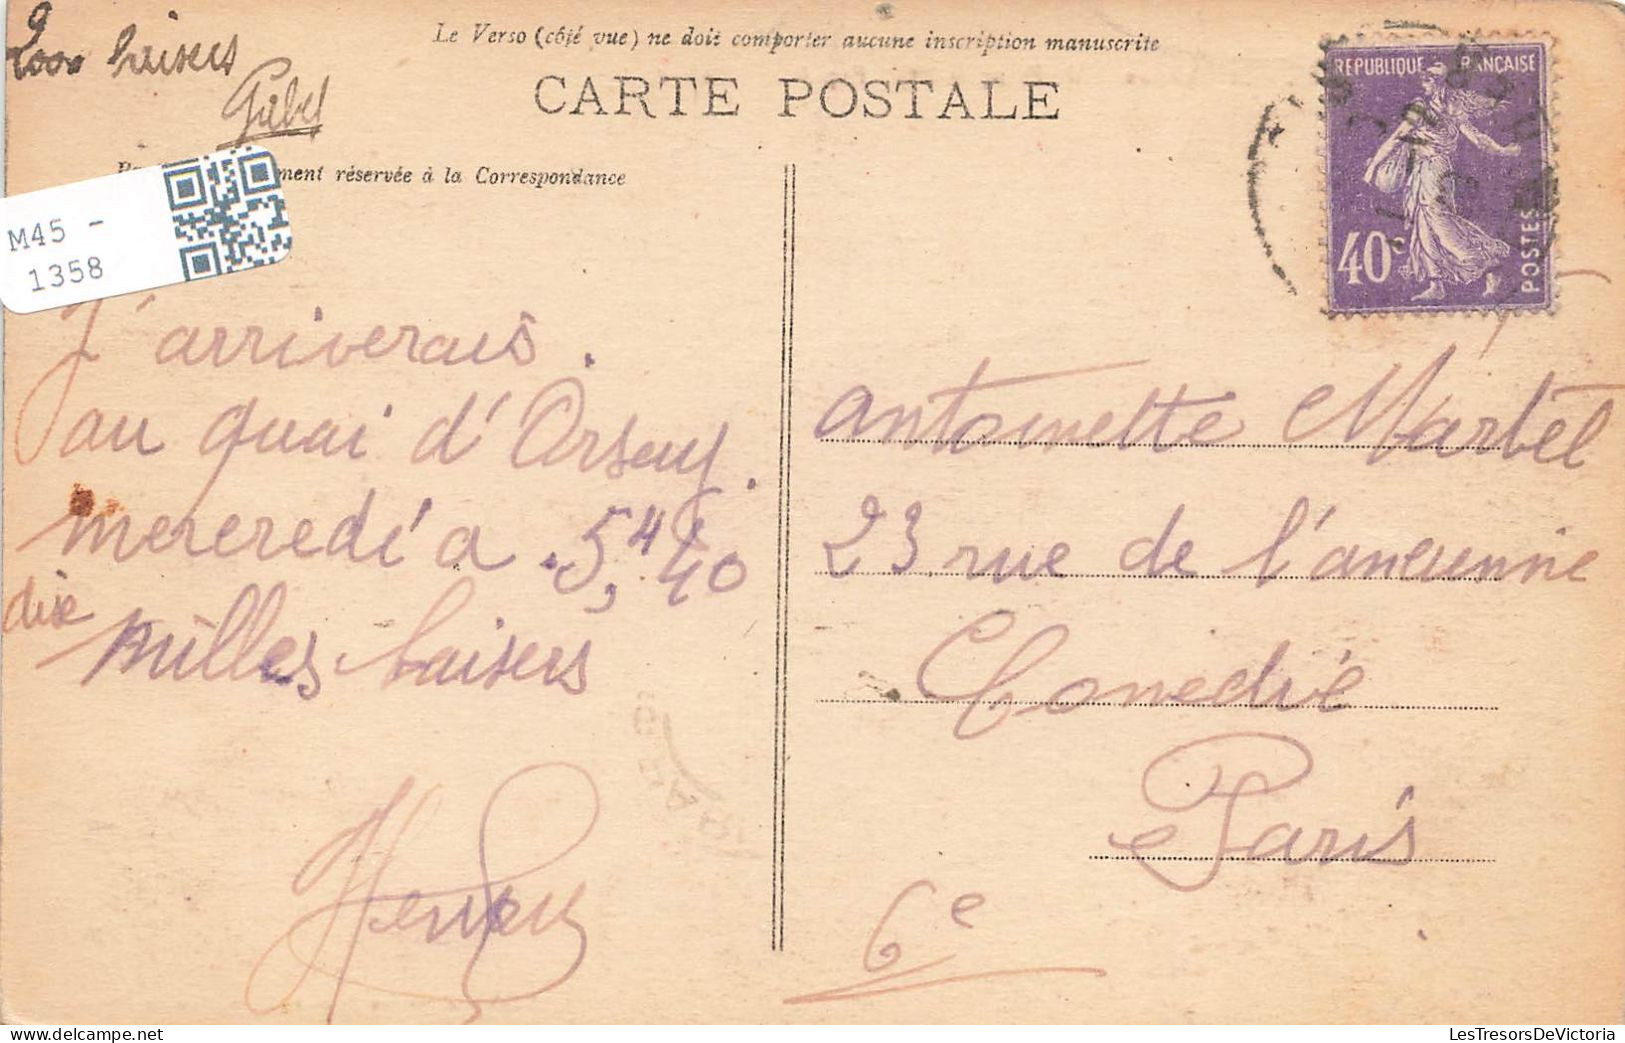 Le Verso (côté vue) ne doit comporter aucune inscription manuscrite
2000 baisers
CARTE POSTALE
ment réservée à la Correspondance
REPUBLIQUE FRANÇAISE
40c
POSTES
M45 -
1358
J'arriverais.
au quai d'Orsay.
mercredi a 5,40
dix
milles baisers
antoinette Martel
23 rue de l'ancienne
Comedie
Paris
6e
LesTresorsDeVictoria.com